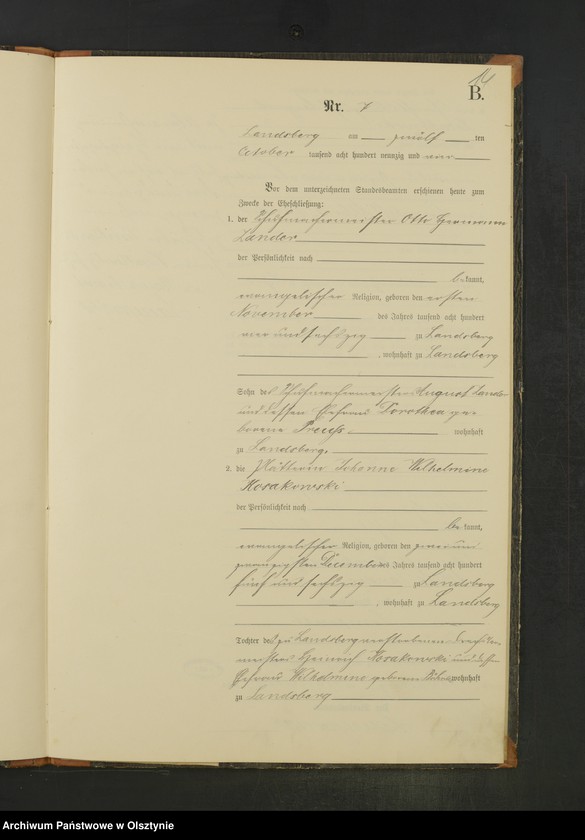 14
B.
Nr. 7
Landsberg am zwölf ten
October tausend acht hundert neunzig und vier
Vor dem unterzeichneten Standesbeamten erschienen heute zum
Zwecke der Eheschließung:
1. der Schuhmachermeister Otto Hermann
Lander
der Persönlichkeit nach
bekannt,
evangelischer Religion, geboren den ersten
November des Jahres tausend acht hundert
vier und sechszig zu Landsberg
, wohnhaft zu Landsberg
Sohn des Schuhmachermeisters August Lander
und dessen Ehefrau Dorothea ge-
borene Preuß wohnhaft
zu Landsberg.
2. die Plätterin Johanne Wilhelmine
Korakowski
der Persönlichkeit nach
bekannt,
evangelischer Religion, geboren den zwei und
zwanzigsten December des Jahres tausend acht hundert
fünf und sechszig zu Landsberg
, wohnhaft zu Landsberg
Tochter des zu Landsberg verstorbenen
meisters Heinrich Korakowski und dessen
Ehefrau Wilhelmine geborene wohnhaft
zu Landsberg
Archiwum Państwowe w Olsztynie